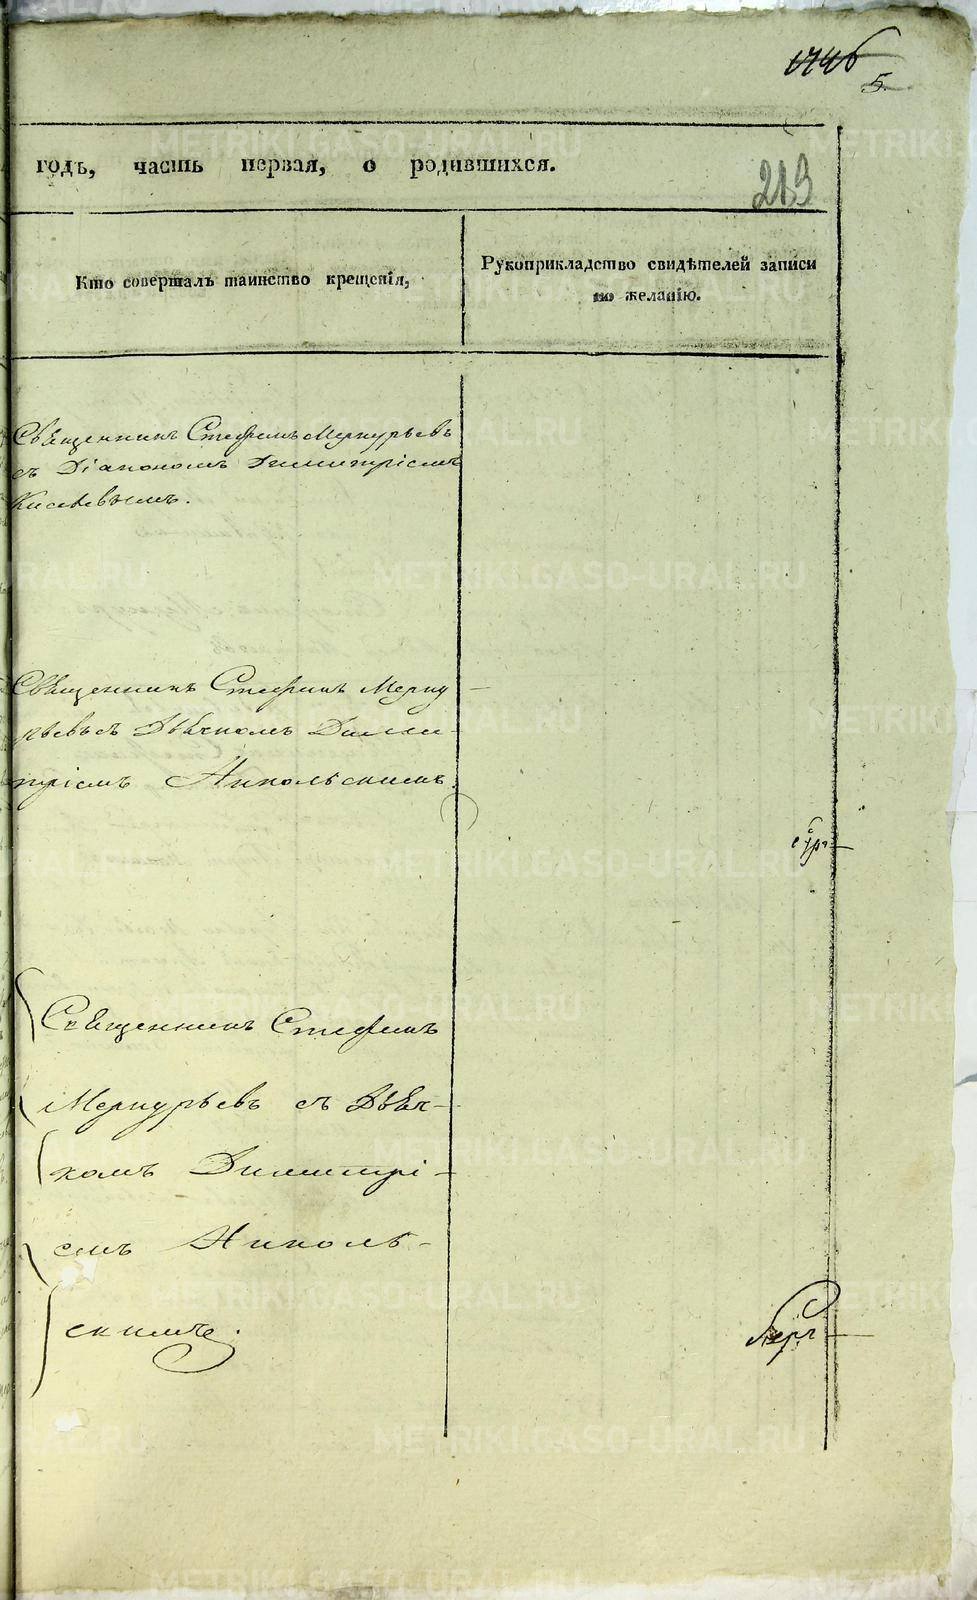 1746
5.
годъ, часть первая, о родившихся.
213
Кто совершалъ таинство крещенія,
Рукоприкладство свидѣтелей записи
по желанію.
Священникъ Стефанъ Меркурьевъ
съ Діакономъ Димитріемъ
Киселевымъ.
Священникъ Стефанъ Мерку
рьевъ съ Дьячкомъ Дими-
тріемъ Никольскимъ.
Священникъ Стефанъ
Меркурьевъ съ Дьяч-
комъ Димитрі-
емъ Николь-
скимъ.
METRIKI.GASO-URAL.RU